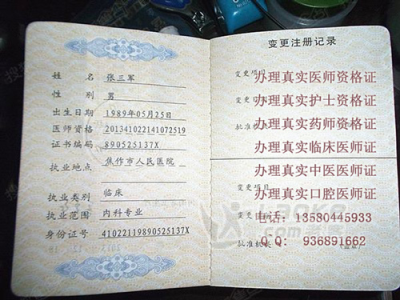 姓 名 张三军
性 别 男
出生日期 1989年05月25日
医师资格 201341022141072519
证书编码 890525137X
执业地点 焦作市人民医院
执业类别 临床
执业范围 内科专业
身份证号 41022119890525137X
变更注册记录
办理真实医师资格证
办理真实护士资格证
办理真实药师资格证
办理真实临床医师证
办理真实中医医师证
办理真实口腔医师证
电话: 13580445933
QQ: 936891662